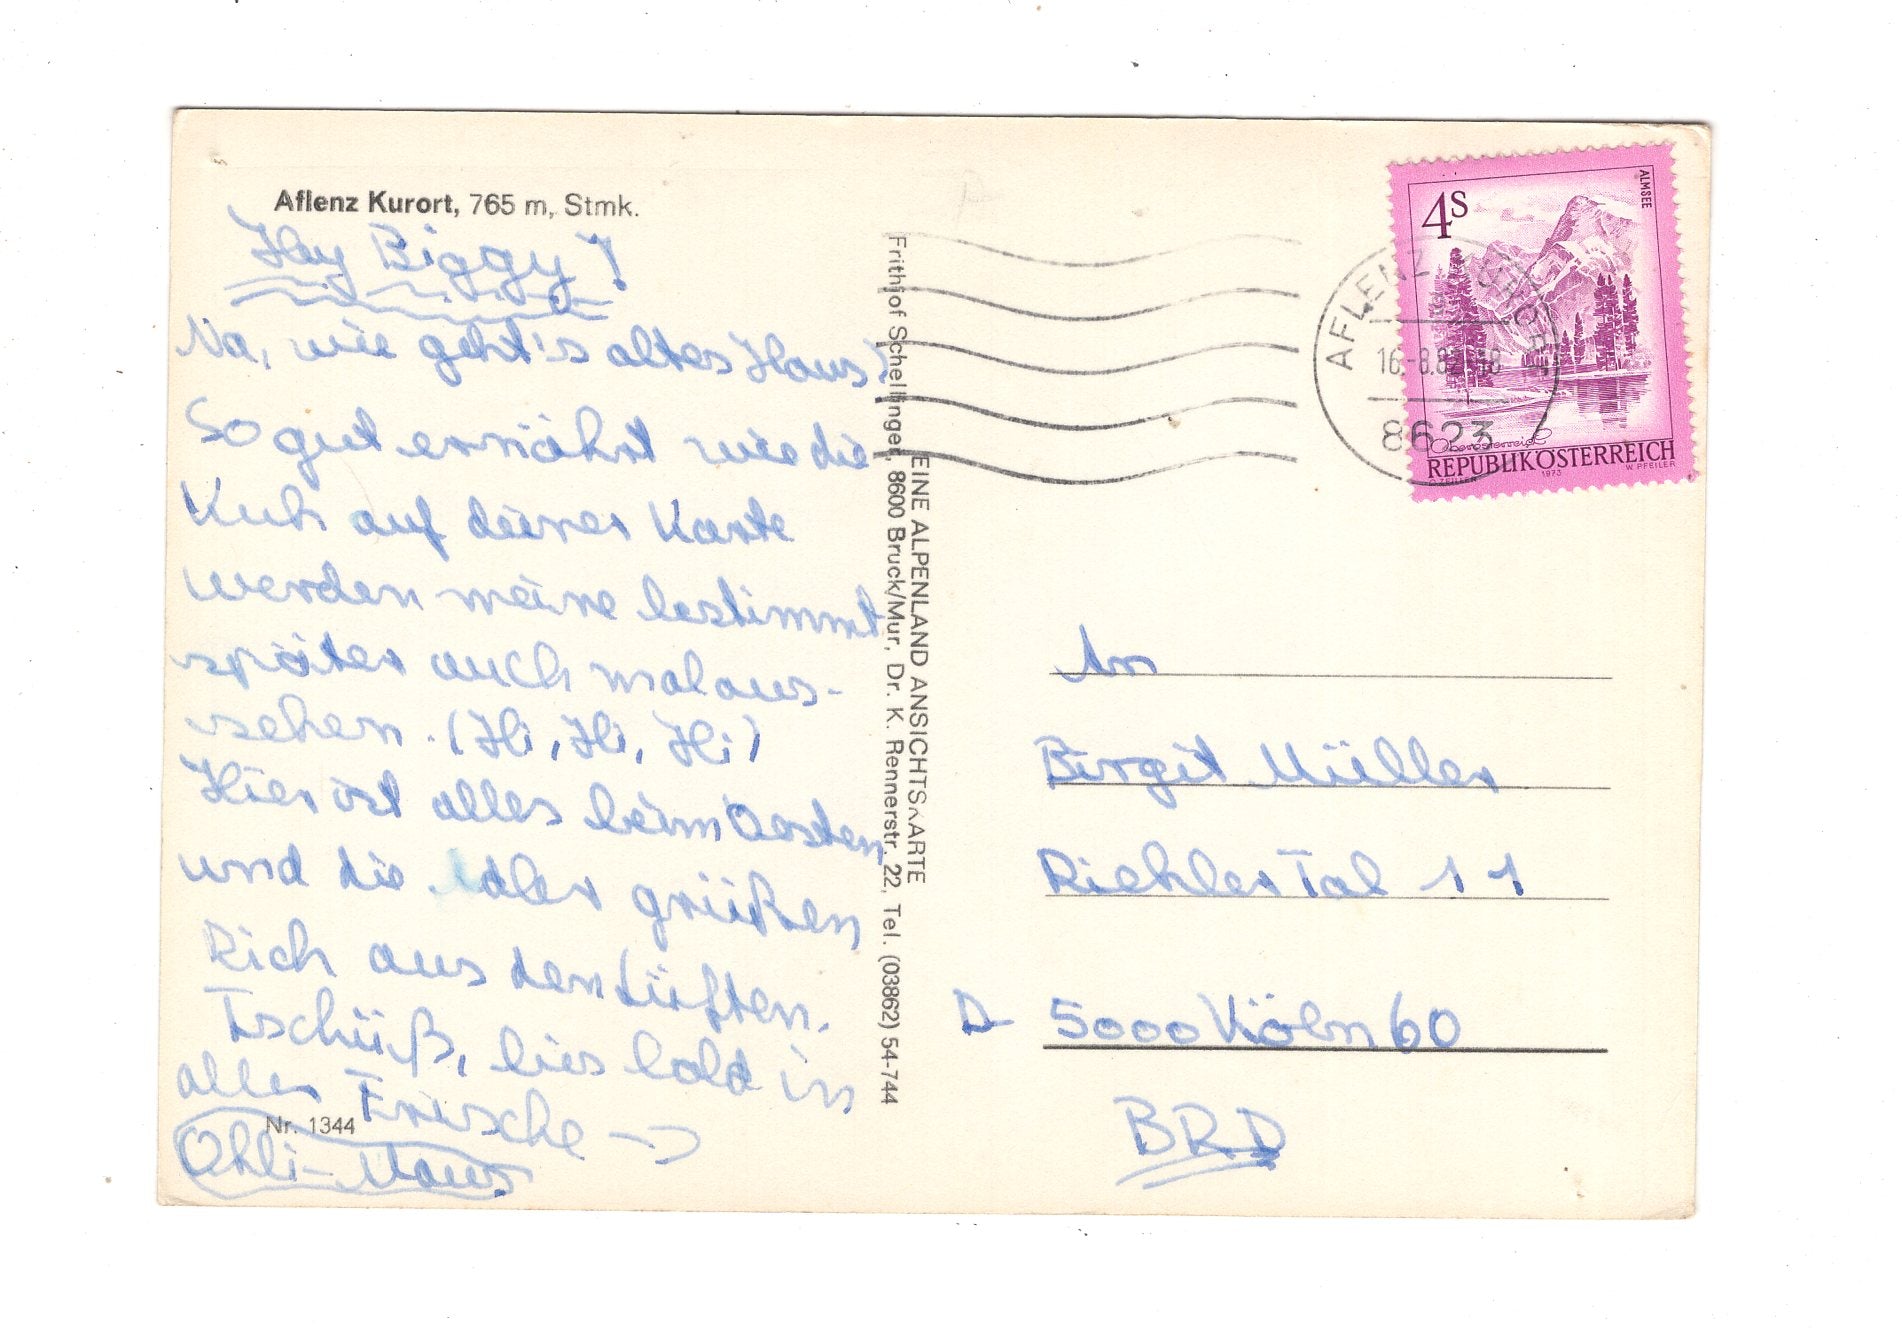 Aflenz Kurort, 765 m, Stmk.
Hey Biggy!
Na, wie geht's altes Haus?
So gut ernährt wie die
Kuh auf deiner Karte
werden meine bestimmt
später auch mal aus-
sehen. (Hi, Hi, Hi)
Hier ist alles beim
und die Adler grüßen
Dich aus den Lüften.
Tschüß, bis bald in
alter Frische →
Nr. 1344
Ohli-Maus
EINE ALPENLAND ANSICHTSKARTE
Frithjof Schellinger, 8600 Bruck/Mur, Dr. K. Rennerstr. 22, Tel. (03862) 54-744
4S
ALMSEE
AFLENZ KURORT
16.-8.82-18
8623
Oberösterreich
REPUBLIK ÖSTERREICH
O. ZEILLER 1973 W. PFEILER
An
Birgit Müller
Riehler Tal 11
D 5000 Köln 60
BRD